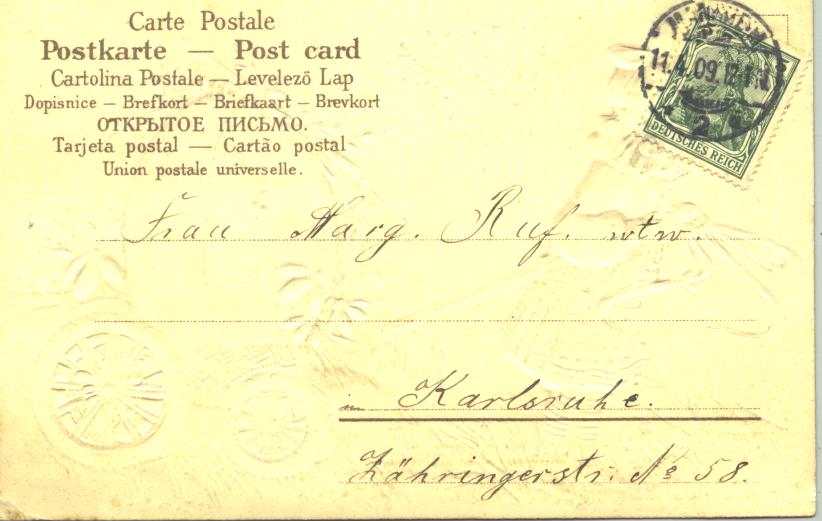 Carte Postale
Postkarte — Post card
Cartolina Postale — Levelező Lap
Dopisnice — Brefkort — Briefkaart — Brevkort
ОТКРЫТОЕ ПИСЬМО.
Tarjeta postal — Cartão postal
Union postale universelle.
11.4.09.
2
DEUTSCHES REICH
Frau Marg. Ruf. wtw.
in Karlsruhe.
Zähringerstr. No 58.